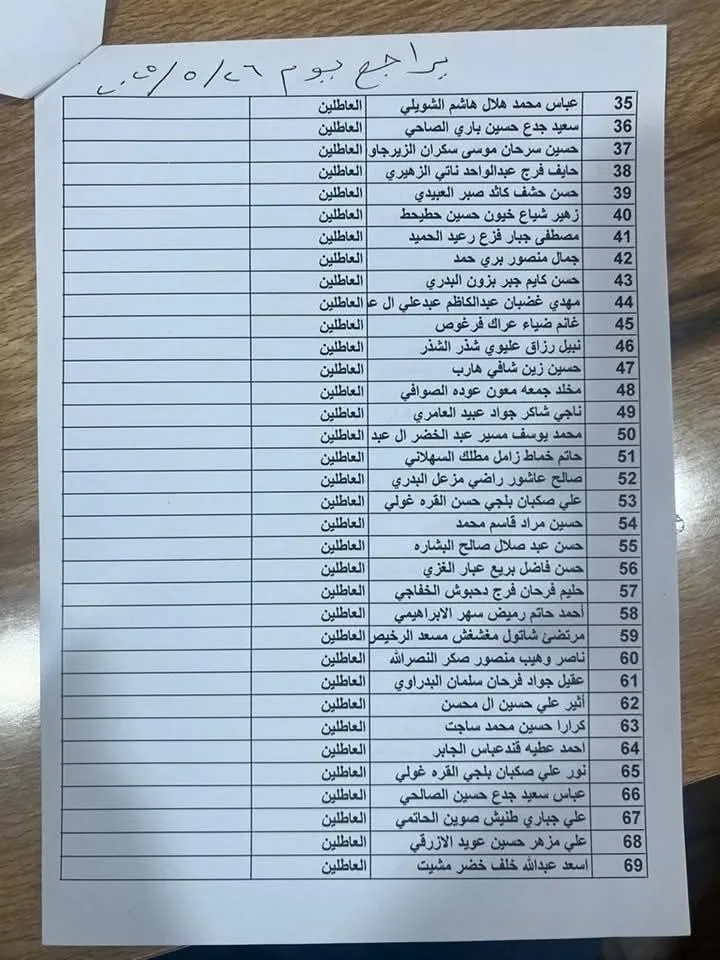 يراجع يوم ٢٠٢٥/٥/٢٦
35 عباس محمد هلال هاشم الشويلي العاطلين
36 سعيد جدع حسين باري الصاحي العاطلين
37 حسين سرحان موسى سكران الزيرجاو العاطلين
38 حايف فرج عبدالواحد ناتي الزهيري العاطلين
39 حسن حشف كائد صبر العبيدي العاطلين
40 زهير شياع خيون حسين حطيحط العاطلين
41 مصطفى جبار فزع رعيد الحميد العاطلين
42 جمال منصور بري حمد العاطلين
43 حسن كايم جبر بزون البدري العاطلين
44 مهدي غضبان عبدالكاظم عبدعلي ال عب العاطلين
45 غانم ضياء عراك فرغوص العاطلين
46 نبيل رزاق عليوي شذر الشذر العاطلين
47 حسين زين شافي هارب العاطلين
48 مخلد جمعه معون عوده الصوافي العاطلين
49 ناجي شاكر جواد عبيد العامري العاطلين
50 محمد يوسف مسير عبد الخضر ال عبد العاطلين
51 حاتم خماط زامل مطلك السهلاني العاطلين
52 صالح عاشور راضي مزعل البدري العاطلين
53 علي صكبان بلجي حسن القره غولي العاطلين
54 حسين مراد قاسم محمد العاطلين
55 حسن عبد صلال صالح البشاره العاطلين
56 حسن فاضل بريع عبار الغزي العاطلين
57 حليم فرحان فرج دحبوش الخفاجي العاطلين
58 أحمد حاتم رميض سهر الابراهيمي العاطلين
59 مرتضئ شاتول مغشغش مسعد الرخيص العاطلين
60 ناصر وهيب منصور صكر النصرالله العاطلين
61 عقيل جواد فرحان سلمان البدراوي العاطلين
62 أثير علي حسين ال محسن العاطلين
63 كرارا حسين محمد ساجت العاطلين
64 احمد عطيه قندعباس الجابر العاطلين
65 نور علي صكبان بلجي القره غولي العاطلين
66 عباس سعيد جدع حسين الصالحي العاطلين
67 علي جباري طنيش صوين الحاتمي العاطلين
68 علي مزهر حسين عويد الازرقي العاطلين
69 اسعد عبدالله خلف خضر مشيت العاطلين